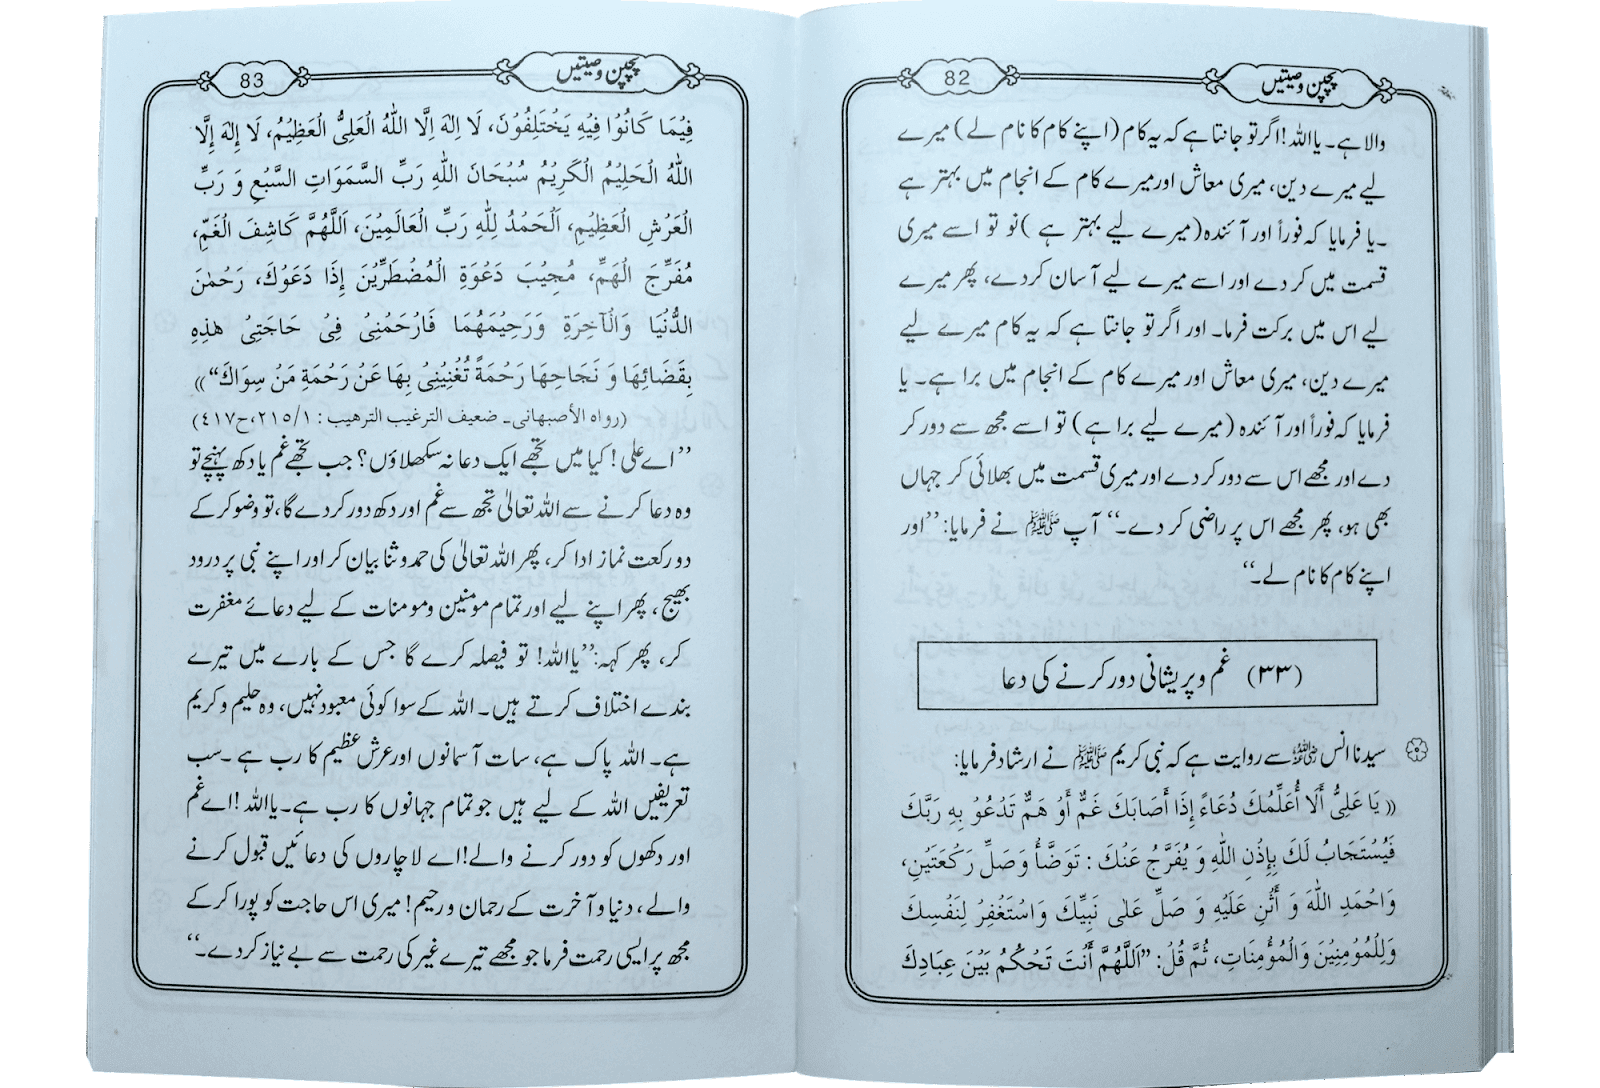 82
پچپن وصیتیں
والا ہے۔ یا اللہ! اگر تو جانتا ہے کہ یہ کام (اپنے کام کا نام لے) میرے
لیے میرے دین، میری معاش اور میرے کام کے انجام میں بہتر ہے
۔یا فرمایا کہ فوراً اور آئندہ (میرے لیے بہتر ہے) نو تو اسے میری
قسمت میں کر دے اور اسے میرے لیے آسان کر دے، پھر میرے
لیے اس میں برکت فرما۔ اور اگر تو جانتا ہے کہ یہ کام میرے لیے
میرے دین، میری معاش اور میرے کام کے انجام میں برا ہے۔ یا
فرمایا کہ فوراً اور آئندہ (میرے لیے برا ہے) تو اسے مجھ سے دور کر
دے اور مجھے اس سے دور کر دے اور میری قسمت میں بھلائی کر جہاں
بھی ہو، پھر مجھے اس پر راضی کر دے۔“ آپ ﷺ نے فرمایا: ”اور
اپنے کام کا نام لے۔“
(۳۳) غم و پریشانی دور کرنے کی دعا
سیدنا انس رضی اللہ عنہ سے روایت ہے کہ نبی کریم ﷺ نے ارشاد فرمایا:
(( يَا عَلِيُّ أَلَا أُعَلِّمُكَ دُعَاءً إِذَا أَصَابَكَ غَمٌّ أَوْ هَمٌّ تَدْعُوْ بِهِ رَبَّكَ
فَيُسْتَجَابُ لَكَ بِإِذْنِ اللّٰهِ وَ يُفَرَّجُ عَنْكَ : تَوَضَّأْ وَصَلِّ رَكْعَتَيْنِ،
وَاحْمَدِ اللّٰهَ وَ أَثْنِ عَلَيْهِ وَ صَلِّ عَلٰى نَبِيِّكَ وَاسْتَغْفِرْ لِنَفْسِكَ
وَلِلْمُؤْمِنِيْنَ وَالْمُؤْمِنَاتِ، ثُمَّ قُلْ: ”اَللّٰهُمَّ أَنْتَ تَحْكُمُ بَيْنَ عِبَادِكَ
83
پچپن وصیتیں
فِيْمَا كَانُوْا فِيْهِ يَخْتَلِفُوْنَ، لَا اِلٰهَ اِلَّا اللّٰهُ الْعَلِيُّ الْعَظِيْمُ، لَا إِلٰهَ إِلَّا
اللّٰهُ الْحَلِيْمُ الْكَرِيْمُ سُبْحَانَ اللّٰهِ رَبِّ السَّمَوَاتِ السَّبْعِ وَ رَبِّ
الْعَرْشِ الْعَظِيْمِ، اَلْحَمْدُ لِلّٰهِ رَبِّ الْعَالَمِيْنَ، اَللّٰهُمَّ كَاشِفَ الْغَمِّ،
مُفَرِّجَ الْهَمِّ، مُجِيْبَ دَعْوَةِ الْمُضْطَرِّيْنَ إِذَا دَعَوْكَ، رَحْمٰنَ
الدُّنْيَا وَالْآخِرَةِ وَرَحِيْمَهُمَا فَارْحَمْنِيْ فِيْ حَاجَتِيْ هٰذِهِ
بِقَضَائِهَا وَ نَجَاحِهَا رَحْمَةً تُغْنِيْنِيْ بِهَا عَنْ رَحْمَةِ مَنْ سِوَاكَ“ ))
(رواه الأصبهانى۔ ضعيف الترغيب الترهيب : ٢١٥/١،ح٤١٧)
”اے علی! کیا میں تجھے ایک دعا نہ سکھلاؤں؟ جب تجھے غم یا دکھ پہنچے تو
وہ دعا کرنے سے اللہ تعالیٰ تجھ سے غم اور دکھ دور کر دے گا، تو وضو کر کے
دو رکعت نماز ادا کر، پھر اللہ تعالیٰ کی حمد و ثنا بیان کر اور اپنے نبی پر درود
بھیج، پھر اپنے لیے اور تمام مومنین و مومنات کے لیے دعائے مغفرت
کر، پھر کہہ: ”یا اللہ! تو فیصلہ کرے گا جس کے بارے میں تیرے
بندے اختلاف کرتے ہیں۔ اللہ کے سوا کوئی معبود نہیں، وہ حلیم و کریم
ہے۔ اللہ پاک ہے، سات آسمانوں اور عرش عظیم کا رب ہے ۔سب
تعریفیں اللہ کے لیے ہیں جو تمام جہانوں کا رب ہے۔ یا اللہ! اے غم
اور دکھوں کو دور کرنے والے! اے لاچاروں کی دعائیں قبول کرنے
والے، دنیا و آخرت کے رحمان و رحیم! میری اس حاجت کو پورا کر کے
مجھ پر ایسی رحمت فرما جو مجھے تیرے غیر کی رحمت سے بے نیاز کر دے۔“